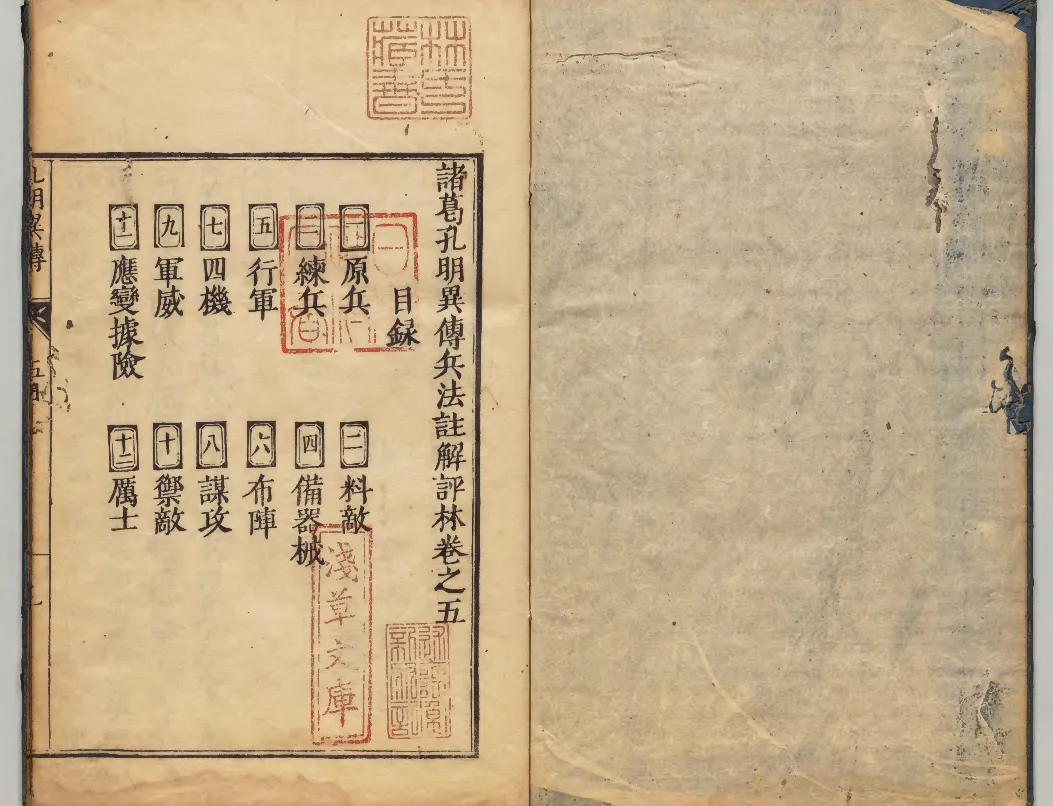 諸葛孔明異傳兵法註解評林卷之五
目録
一 原兵
二 料敵
三 練兵
四 備器械
五 行軍
六 布陣
七 四機
八 謀攻
九 軍威
十 禦敵
十一 應變據險
十二 厲士
孔明異傳
林氏藏書
淺草文庫